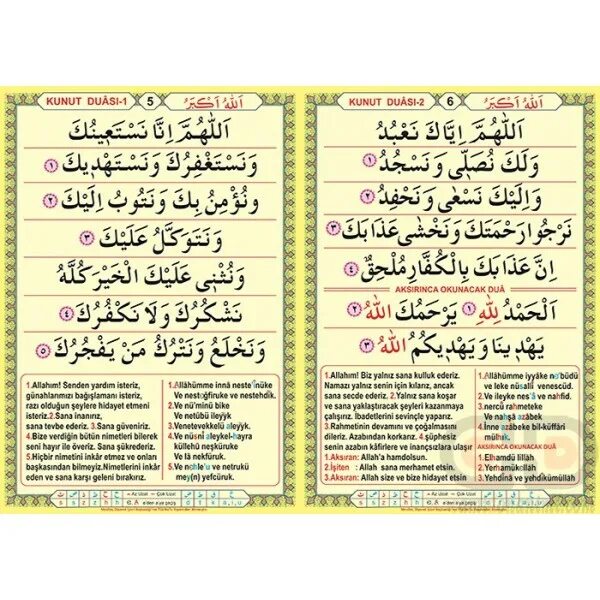 KUNUT DUÂSI-1
5
اَللهُ اَكْبَرُ
اَللّٰهُمَّ اِنَّا نَسْتَعٖينُكَ
وَنَسْتَغْفِرُكَ وَنَسْتَهْدٖيكَ ١
وَنُؤْمِنُ بِكَ وَنَتُوبُ اِلَيْكَ ٢
وَنَتَوَكَّلُ عَلَيْكَ ٣
وَنُثْنٖى عَلَيْكَ الْخَيْرَ كُلَّهُ
نَشْكُرُكَ وَلَا نَكْفُرُكَ ٤
وَنَخْلَعُ وَنَتْرُكُ مَنْ يَفْجُرُكَ ٥
1.Allahım! Senden yardım isteriz,
günahlarımızı bağışlamanı isteriz,
razı olduğun şeylere hidayet etmeni
isteriz.2.Sana inanırız,
sana tevbe ederiz. 3.Sana güveniriz.
4.Bize verdiğin bütün nimetleri bilerek
seni hayır ile överiz. Sana şükrederiz.
5.Hiçbir nimetini inkar etmez ve onları
başkasından bilmeyiz.Nimetlerini inkâr
eden ve sana karşı geleni bırakırız.
1.Allâhümme innâ neste'înüke
Ve nestağfiruke ve nestehdîk.
2.Ve nü'minü bike
Ve netûbü ileyk
3.Venetevekkelü aleyük
4.Ve nüsnî aleykel-hayra
küllehû neşkürüke
Ve lâ nekfürük.
5.Ve nehle'u ve netrukü
mey(n) yefcürük.
KUNUT DUÂSI-2
6
اَللهُ اَكْبَرُ
اَللّٰهُمَّ اِيَّاكَ نَعْبُدُ
وَلَكَ نُصَلّٖى وَنَسْجُدُ ١
وَاِلَيْكَ نَسْعٰى وَنَحْفِدُ ٢
نَرْجُوا رَحْمَتَكَ وَنَخْشٰى عَذَابَكَ ٣
اِنَّ عَذَابَكَ بِالْكُفَّارِ مُلْحِقٌ ٤
AKSIRINCA OKUNACAK DUÂ
اَلْحَمْدُ لِلّٰهِ ١ يَرْحَمُكَ اللهُ ٢
يَهْدٖينَا وَيَهْدٖيكُمُ اللهُ ٣
1.Allahım! Biz yalnız sana kulluk ederiz.
Namazı yalnız senin için kılarız, ancak
sana secde ederiz. 2.Yalnız sana koşar
ve sana yaklaştıracak şeyleri kazanmaya
çalışırız. İbadetlerini sevinçle yaparız.
3.Rahmetinin devamını ve çoğalmasını
dileriz. Azabından korkarız. 4.şüphesiz
senin azabın kâfirlere ve inançsızlara ulaşır.
1.Aksıran: Allah'a hamdolsun.
2.İşiten : Allah sana merhamet etsin.
3.Aksıran: Allah size ve bize hidayet etsin
1.Allâhümme iyyâke na'büdü
ve leke nüsallî venescüd.
2.Ve ileyke nes'â ve nahfid.
3.nercû rahmeteke
Ve nahşâ azâbek
4.İnne azâbeke bil-küffâri
mülhık.
AKSIRINCA OKUNACAK DUÂ
1.Elhamdü lillâh
2.Yerhamükillâh
3.Yehdînâ ve yehdîkümüllâh